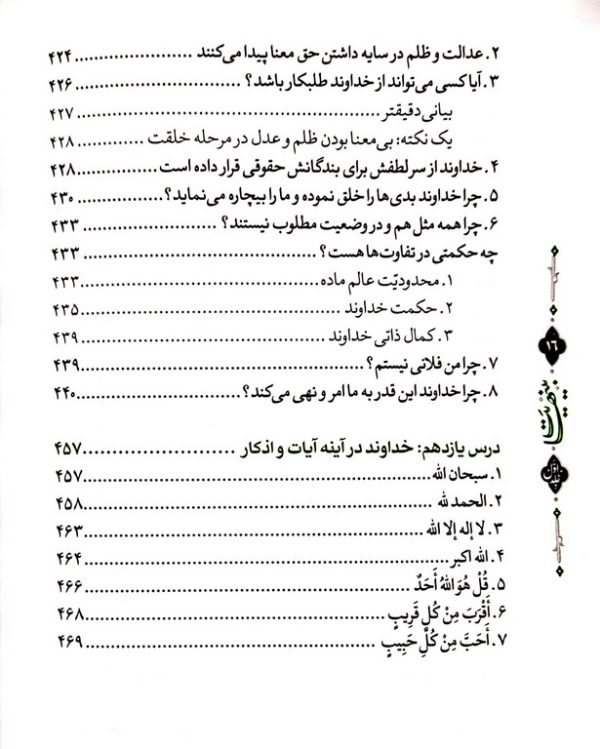 ۲. عدالت و ظلم در سایه داشتن حق معنا پیدا می‌کنند ..................... ۴۲۴
۳. آیا کسی می‌تواند از خداوند طلبکار باشد؟ ............................. ۴۲۶
بیانی دقیقتر ..................................................... ۴۲۷
یک نکته: بی‌معنا بودن ظلم و عدل در مرحله خلقت ............. ۴۲۸
۴. خداوند از سر لطفش برای بندگانش حقوقی قرار داده است ............ ۴۲۸
۵. چرا خداوند بدی‌ها را خلق نموده و ما را بیچاره می‌نماید؟ ............... ۴۳۰
۶. چرا همه مثل هم و در وضعیت مطلوب نیستند؟ ........................ ۴۳۳
چه حکمتی در تفاوت‌ها هست؟ ......................................... ۴۳۳
۱. محدودیّت عالم ماده ........................................... ۴۳۳
۲. حکمت خداوند ............................................... ۴۳۵
۳. کمال ذاتی خداوند ............................................ ۴۳۹
۷. چرا من فلانی نیستم؟ ............................................. ۴۳۹
۸. چرا خداوند این قدر به ما امر و نهی می‌کند؟ ........................... ۴۴۰
درس یازدهم: خداوند در آینه آیات و اذکار ........................... ۴۵۷
۱. سبحان الله ....................................................... ۴۵۷
۲. الحمد لله ........................................................ ۴۵۸
۳. لا إله إلا الله ..................................................... ۴۶۳
۴. الله اکبر .......................................................... ۴۶۴
۵. قُلْ هُوَ اللهُ أَحَدٌ .................................................. ۴۶۶
۶. أَقْرَبَ مِنْ کُلِ قَرِیبٍ ............................................... ۴۶۸
۷. أَحَبَّ مِنْ کُلِّ حَبِیبٍ ............................................... ۴۶۹
۱۶